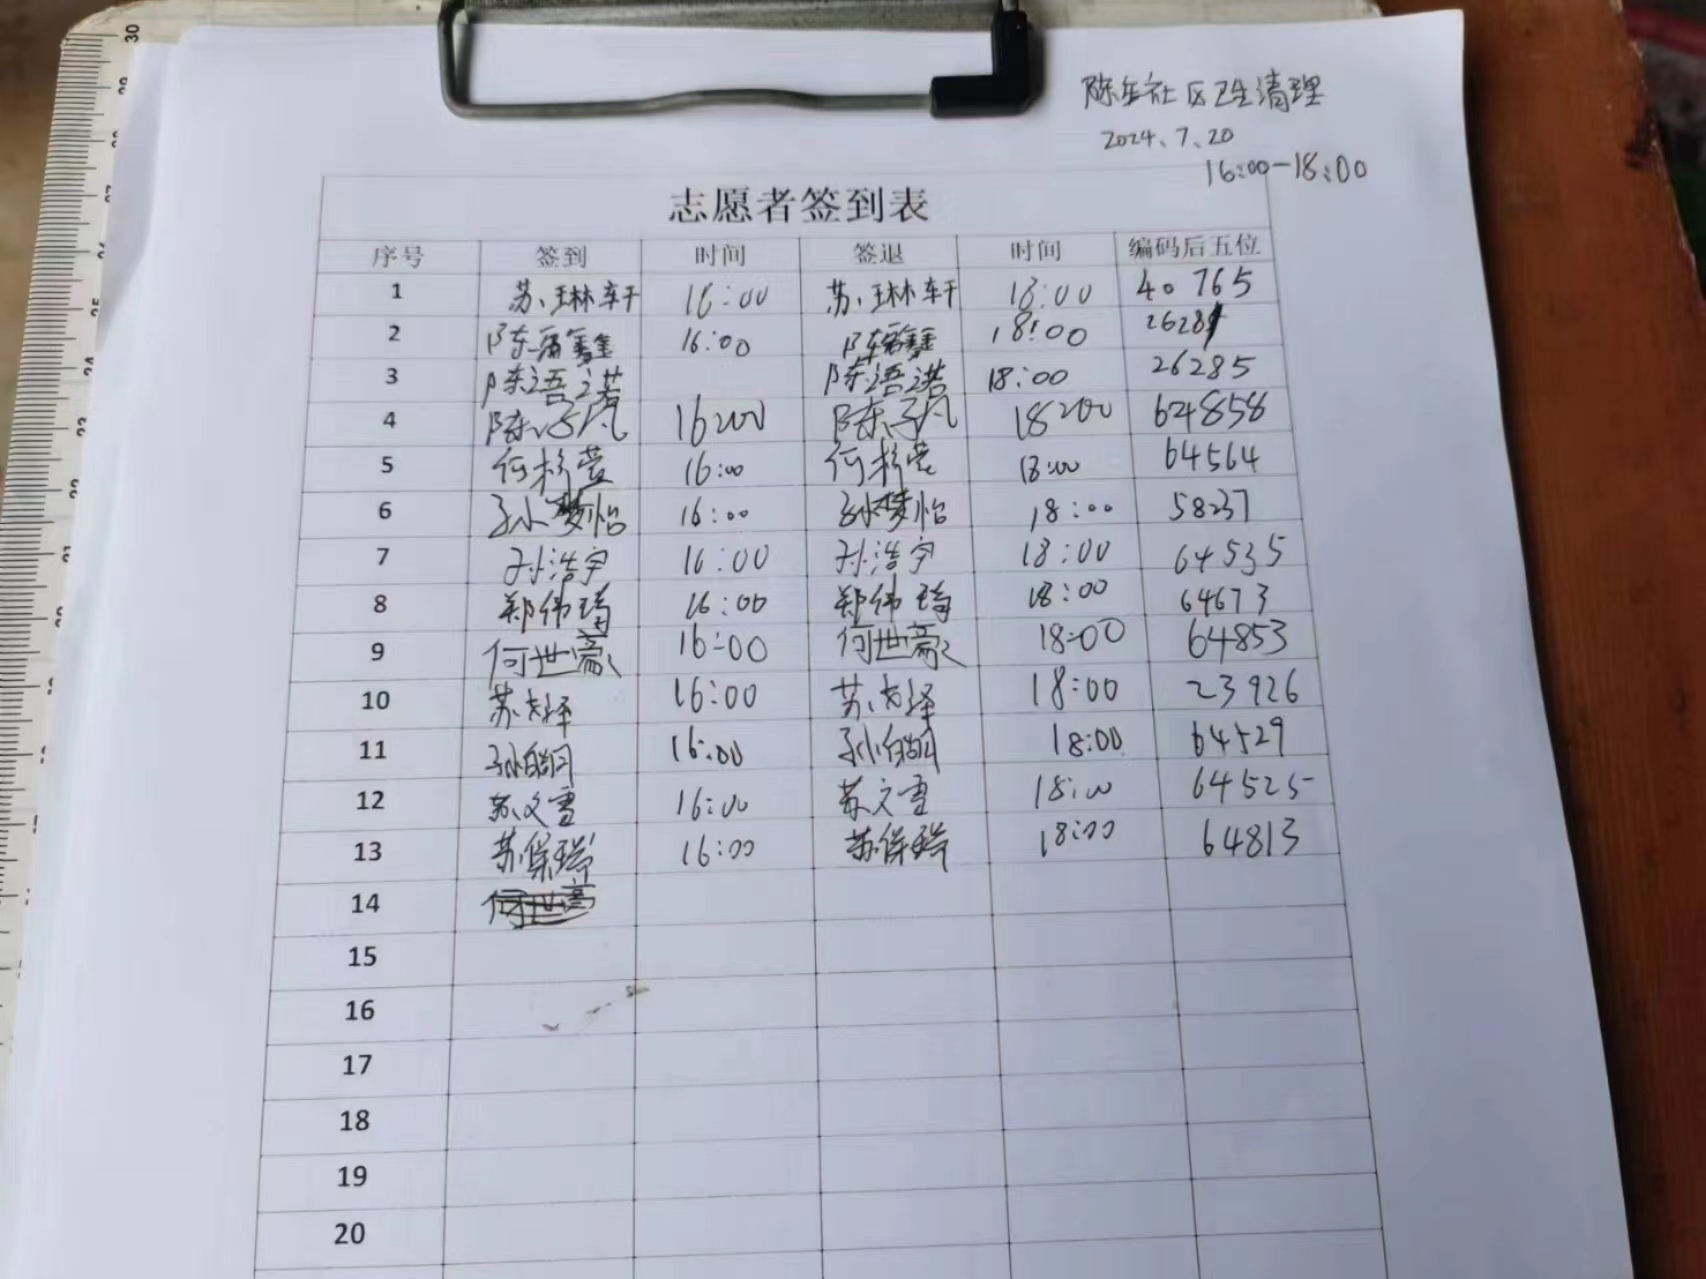 陈年社区卫生清理
2024.7.20
16:00-18:00
志愿者签到表
序号 签到 时间 签退 时间 编码后五位
1 苏琳轩 16:00 苏琳轩 18:00 40765
2 陈 鑫 16:00 陈 鑫 18:00
3 陈语诺 陈语诺 18:00 26285
4 陈子凡 16:00 陈子凡 18:00 64858
5 何杉萱 16:00 何杉萱 18:00 64564
6 孙梦怡 16:00 孙梦怡 18:00 58237
7 孙浩宇 16:00 孙浩宇 18:00 64535
8 郑伟琦 16:00 郑伟琦 18:00 64673
9 何世豪 16:00 何世豪 18:00 64853
10 苏 泽 16:00 苏 泽 18:00 23926
11 孙皓 16:00 孙皓 18:00 64529
12 苏文雪 16:00 苏文雪 18:00 64525
13 苏保瑞 16:00 苏保瑞 18:00 64813
14 何世豪
15
16
17
18
19
20